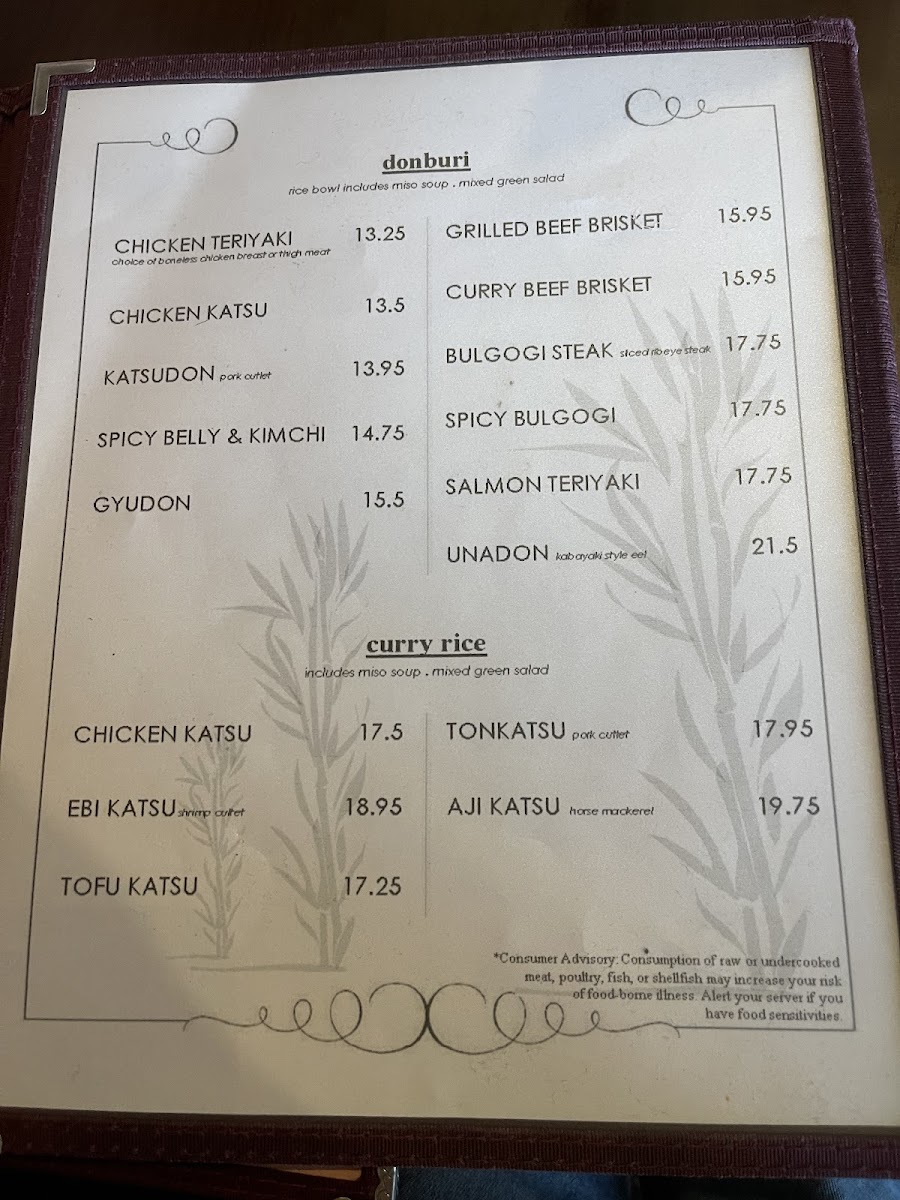 donburi
rice bowl includes miso soup . mixed green salad
CHICKEN TERIYAKI 13.25
choice of boneless chicken breast or thigh meat
CHICKEN KATSU 13.5
KATSUDON pork cutlet 13.95
SPICY BELLY & KIMCHI 14.75
GYUDON 15.5
GRILLED BEEF BRISKET 15.95
CURRY BEEF BRISKET 15.95
BULGOGI STEAK sliced ribeye steak 17.75
SPICY BULGOGI 17.75
SALMON TERIYAKI 17.75
UNADON kabayaki style eel 21.5
curry rice
includes miso soup . mixed green salad
CHICKEN KATSU 17.5
EBI KATSU shrimp cultet 18.95
TOFU KATSU 17.25
TONKATSU pork cutlet 17.95
AJI KATSU horse mackerel 19.75
*Consumer Advisory: Consumption of raw or undercooked
meat, poultry, fish, or shellfish may increase your risk
of food-borne illness. Alert your server if you
have food sensitivities.